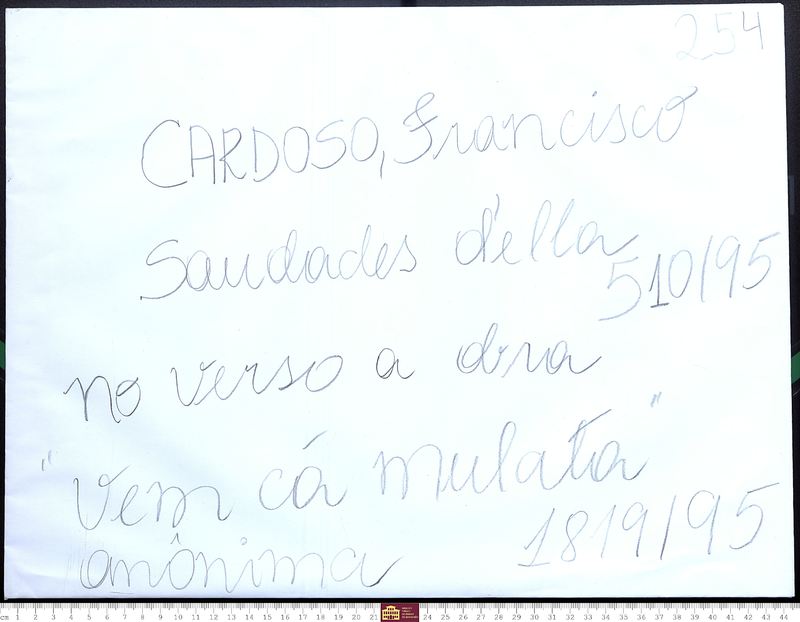 254
CARDOSO, Francisco
Saudades d'ella
510/95
no verso a obra
"Vem cá mulata"
anônima 1819/95
cm 1 2 3 4 5 6 7 8 9 10 11 12 13 14 15 16 17 18 19 20 21 24 25 26 27 28 29 30 31 32 33 34 35 36 37 38 39 40 41 42 43 44